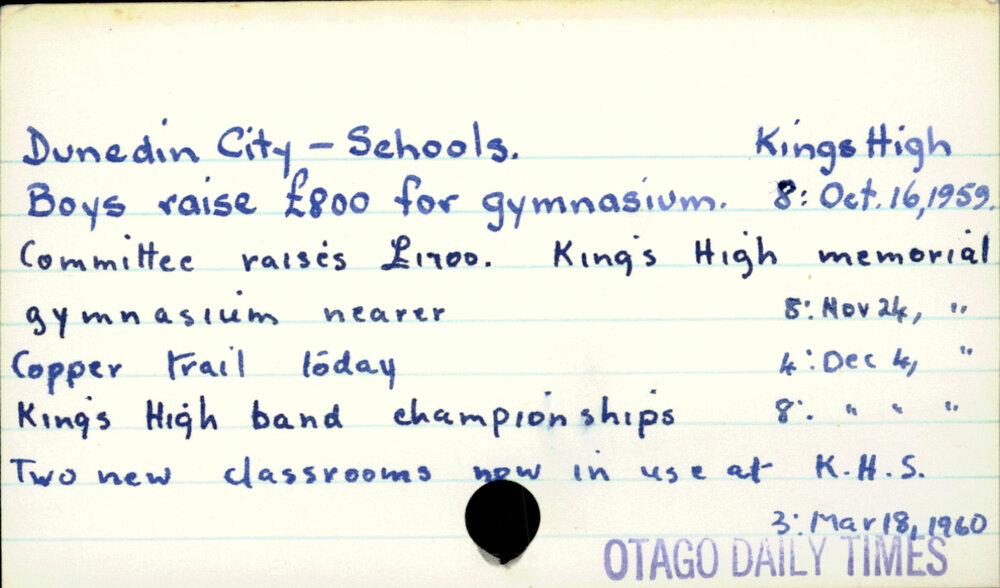 Dunedin City - Schools. Kings High
Boys raise £800 for gymnasium. 8: Oct. 16, 1959.
Committee raises £1700. King's High memorial
gymnasium nearer 8: Nov 24, "
Copper trail today 4: Dec 4, "
King's High band championships 8: " " "
Two new classrooms now in use at K.H.S.
3: Mar 18, 1960
OTAGO DAILY TIMES